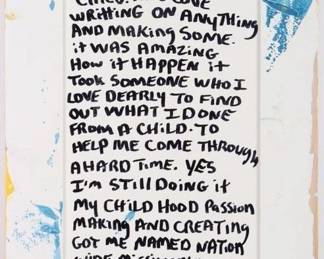 WRITTING ON ANYTHING
AND MAKING SOME.
iT WAS AMAZING
HOW iT HAPPEN iT
TOOK SOMEONE WHO I
LOVE DEARLY TO FIND
OUT WHAT I DONE
FROM A CHiLD. TO
HELP ME COME THROUGH
A HARD TIME. YES
I'M STiLL DOiNG iT
MY CHILD HOOD PASSiON
MAKiNG AND CREATiNG
GOT ME NAMED NATiON